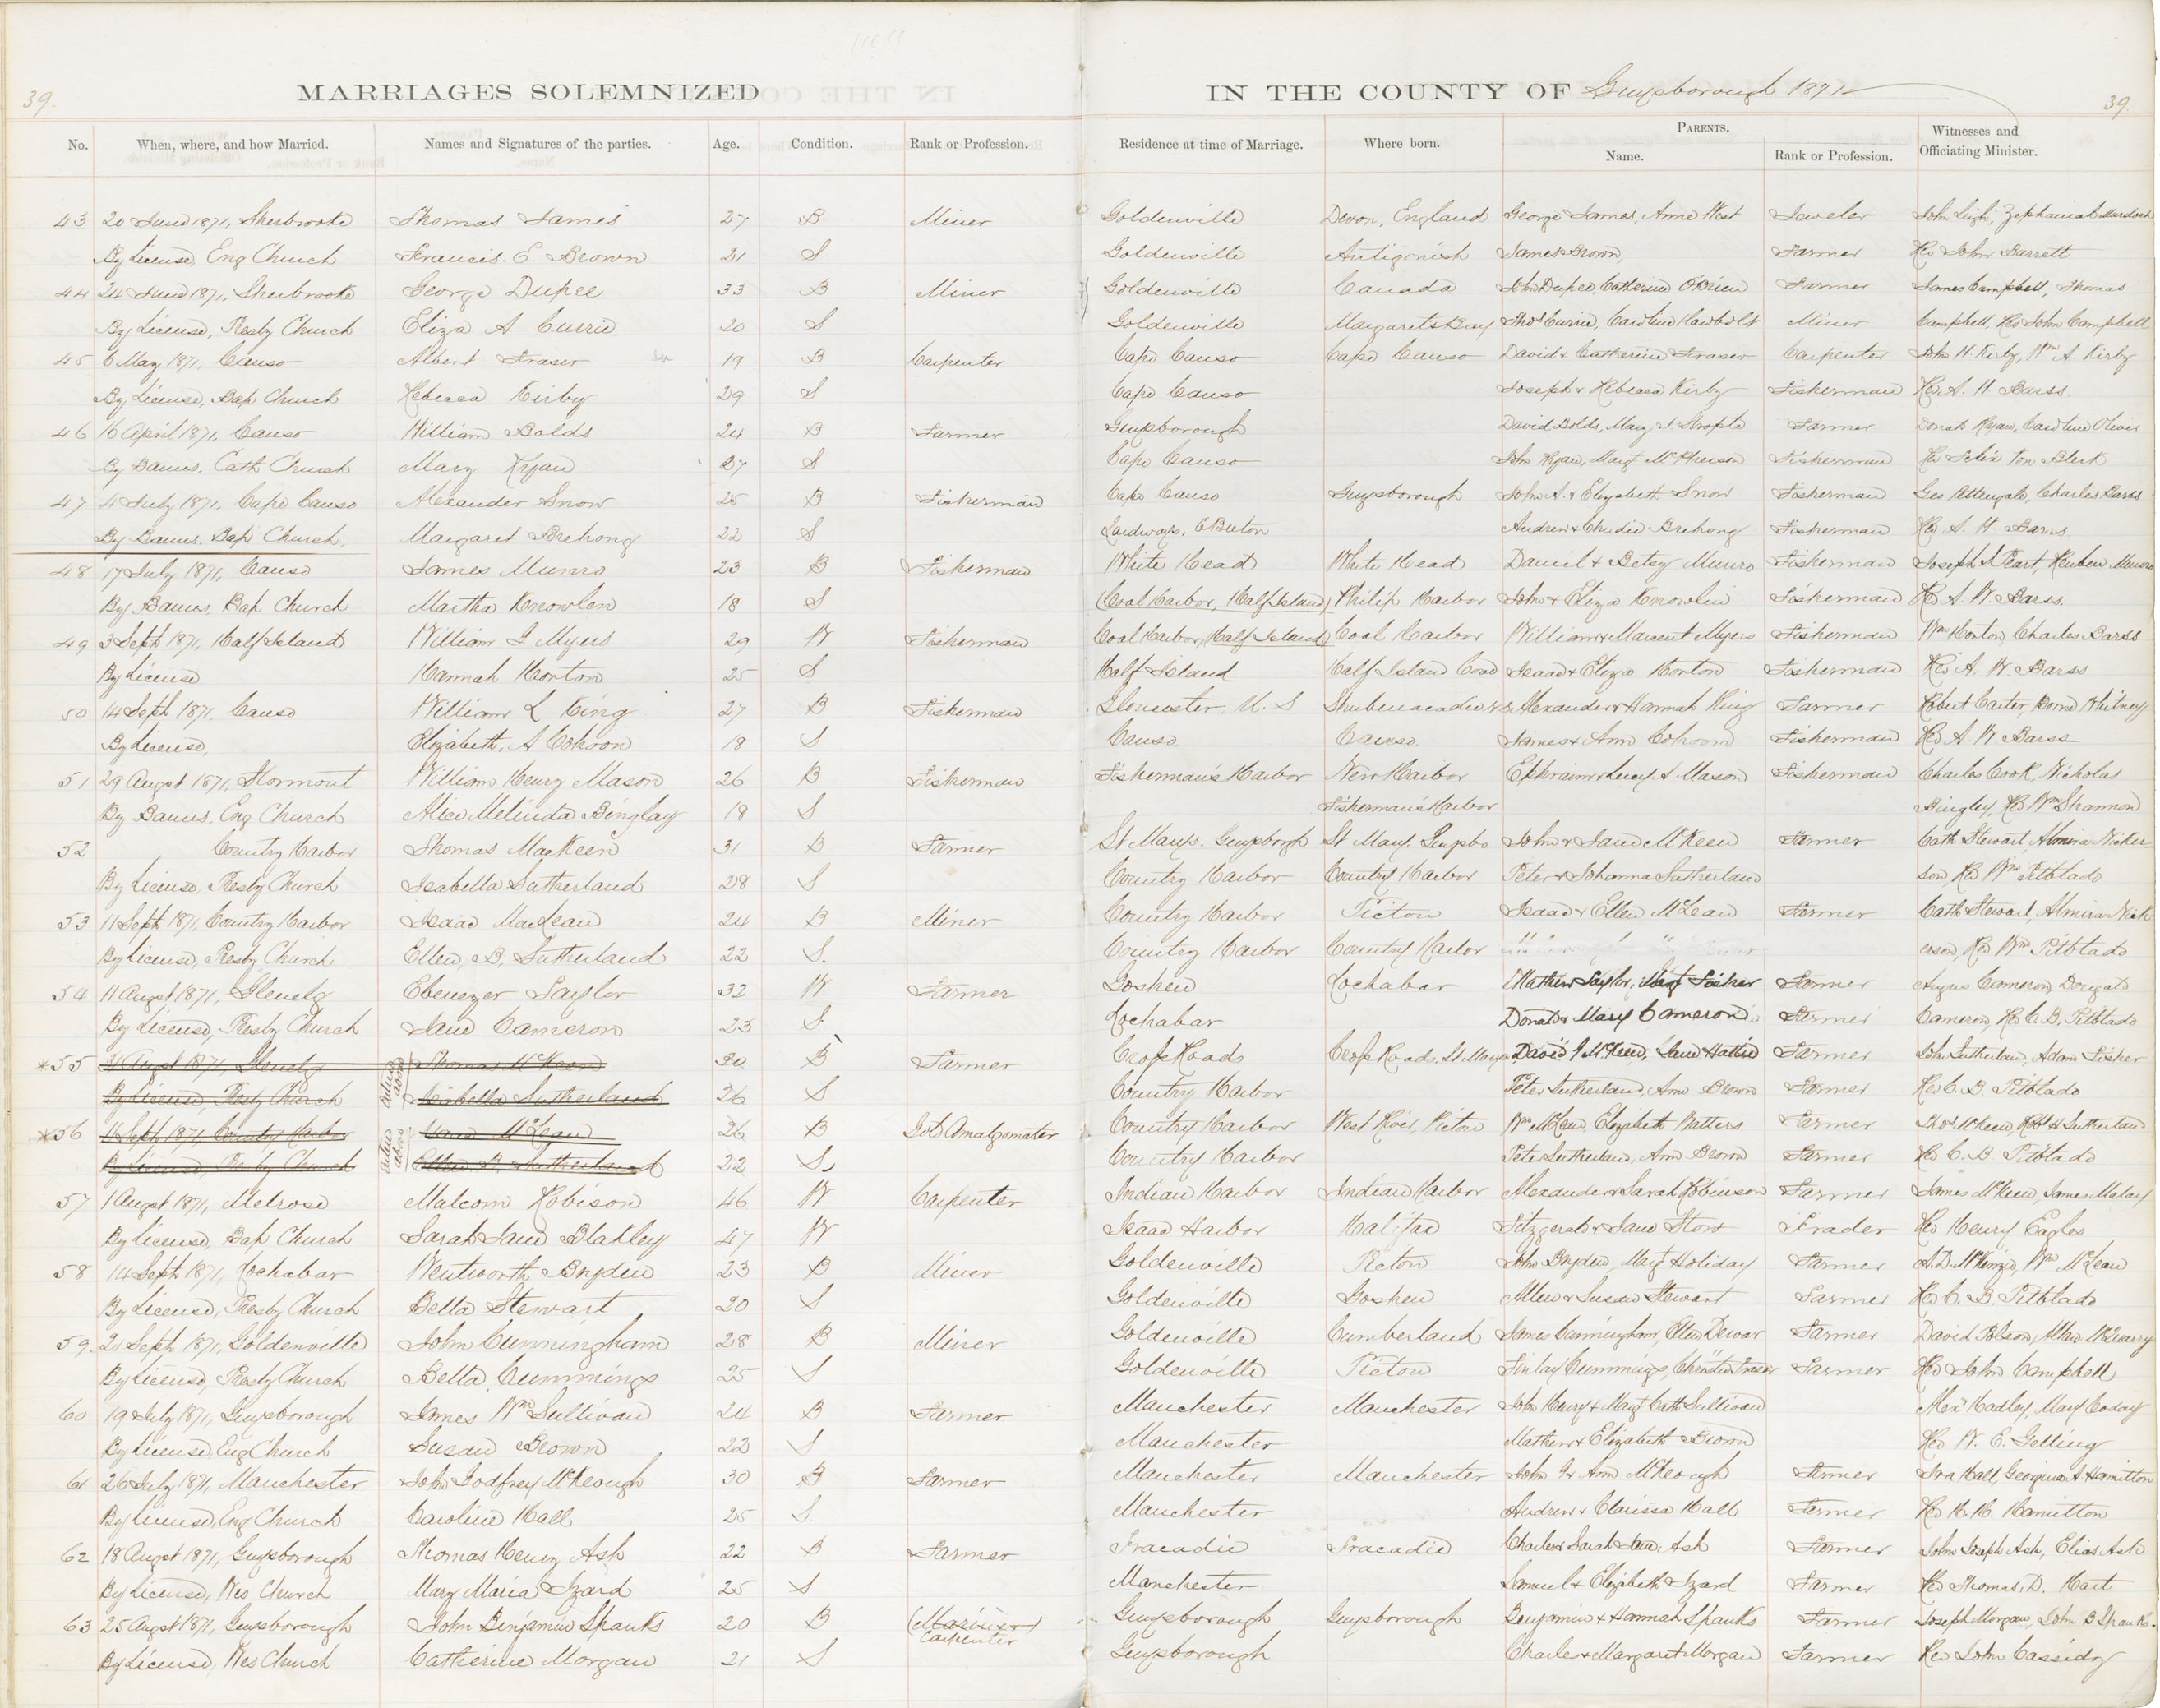 39.
MARRIAGES SOLEMNIZED IN THE COUNTY OF Guysborough 1871
39.
No. When, where, and how Married. Names and Signatures of the parties. Age. Condition. Rank or Profession. Residence at time of Marriage. Where born. PARENTS. Name. Rank or Profession. Witnesses and Officiating Minister.
43 20 June 1871, Sherbrooke Thomas James 27 B Miner Goldenville Devon, England George James, Anne West Jeweler John Leigh, Zephaniah Murdock
By License, Eng Church Francis. E. Brown 21 S Goldenville Antigonish James Brown, Farmer Rev John Barrett
44 24 June 1871, Sherbrooke George Dupee 33 B Miner Goldenville Canada John Dupee, Catherine O'Brien Farmer James Campbell, Thomas
By License, Presby Church Eliza A Currie 20 S Goldenville Margarets Bay Thos Currie, Caroline Hawbolt Miner Campbell, Rev John Campbell
45 6 May 1871, Canso Albert Fraser 19 B Carpenter Cape Canso Cape Canso David & Catherine Fraser Carpenter John H. Kirby, Wm A. Kirby
By License, Bap Church Rebecca Kirby 29 S Cape Canso Joseph & Rebecca Kirby Fisherman Rev A. H Barss
46 16 April 1871, Canso William Bolds 24 B Farmer Guysborough David Bolds, Mary J. Farmer Donald Ryan, Caroline Oliver
By Banns, Cath Church Mary Ryan 27 S Cape Canso John Ryan, Margt McPherson Fisherman Rev Felix Van Blerk
47 4 July 1871, Cape Canso Alexander Snow 25 B Fisherman Cape Canso Guysborough John A. & Elizabeth Snow Fisherman Geo Charles Barss
By Banns. Bap Church, Margaret Brehong 22 S C Breton Andrew & Brehong Fisherman Rev A. H Barss
48 17 July 1871, Canso James Munro 23 B Fisherman White Head White Head Daniel & Betsy Munro Fisherman Joseph Peart, Reuben Munro
By Banns, Bap Church Martha Knowlen 18 S (Coal Harbor, Half Island) Philip Harbor John & Eliza Knowlin Fisherman Rev A. W. Barss
49 3 Sept 1871, Half Island William G Myers 29 W Fisherman Coal Harbor, (Half Island) Coal Harbor William & Myers Fisherman Wm Horton, Charles Barss
By License Hannah Horton 25 S Half Island Half Island Cove Isaac & Eliza Horton Fisherman Rev A. W. Barss
50 14 Sept 1871, Canso William L King 27 B Fisherman Gloucester, U. S Shubenacadie Alexander & Hannah King Farmer Robert Carter, Whitney
By License, Elizabeth. A Cohoon 18 S Canso Canso James & Ann Cohoon Fisherman Rev A W Barss
51 29 Augst 1871, Stormont William Henry Mason 26 B Fisherman Fisherman's Harbor New Harbor Ephraim & Lucy A Mason Fisherman Charles Cook, Nicholas
By Banns, Eng Church Alice Melinda Binglay 18 S Fisherman's Harbor Bingley, Rev Wm Shannon
52 Country Harbor Thomas MacKeen 31 B Farmer St Marys. Guysborogh St Marys. Guysbo John & Jane McKeen Farmer Cath Stewart, Almira Nicker-
By License, Presby Church Isabella Sutherland 28 S Country Harbor Country Harbor Peter & Johanna Sutherland son, Rev Wm Pitblado
53 11 Sept 1871, Country Harbor Isaac MacLean 24 B Miner Country Harbor Pictou Isaac & Ellen McLean Farmer Cath Stewart, Almira Nick
By License, Presby Church Ellen, B, Sutherland 22 S. Country Harbor Country Harbor " " " erson, Rev Wm Pitblado
54 11 Augst 1871, Glenelg Ebenezer Taylor 32 W Farmer Goshen Lochabar Mathew Taylor, Margt Fisher Farmer Angus Cameron, Dougald
By License, Presby Church Jane Cameron 23 S. Lochabar Donald & Mary Cameron Farmer Cameron, Rev C. B. Pitblado
*55 Augst 1871, Glenelg Thomas McKeen 30 B Farmer Cross Roads Cross Roads, St Marys David J McKeen, Jane Hattie Farmer John Sutherland, Adam Fisher
By License, Presby Church Isabella Sutherland 26 S Country Harbor Peter Sutherland, Ann Brown Farmer Rev C. B. Pitblado
*56 11 Sept 1871 Country Harbor Isaac McLean 26 B Gold Amalgomater Country Harbor West River, Pictou Wm McLean, Elizabeth Watters Farmer Thos McKeen, Robt H Sutherland
By License, Presby Church Ellen B. Sutherland 22 S Country Harbor Peter Sutherland, Ann Brown Farmer Rev C. B. Pitblado
57 1 Augst 1871, Melrose Malcom Robison 46 W Carpenter Indian Harbor Indian Harbor Alexander & Sarah Robinson Farmer James McKeen, James Malay
By License, Bap Church Sarah Jane Blakley 47 W Isaac Harbor Halifax Fitzgerald & Jane Stow Trader Rev Henry Eagles
58 14 Sept 1871, Lochabar Wentworth Bryden 23 B Miner Goldenville Pictou John Bryden, Margt Holiday Farmer A. D. McKenzie, Wm McLean
By License, Presby Church Bella Stewart 20 S Goldenville Goshen Allen & Susan Stewart Farmer Rev C. B. Pitblado
59. 21 Sept 1871, Goldenville John Cunningham 28 B Miner Goldenville Cumberland James Cunningham, Ellen Dewar Farmer David Polson, Allan McQuarry
By License, Presby Church Bella Cummings 25 S Goldenville Pictou Finlay Cummings, Christen Fraser Farmer Rev John Campbell
60 19 July 1871, Guysborough James Wm Sullivan 24 B Farmer Manchester Manchester John Henry & Margt Cath Sullivan Alex Hadley, Mary Coday
By License, Eng Church Susan Brown 22 S Manchester Mathew & Elizabeth Brown Rev W. E. Gelling
61 26 July 1871, Manchester John Godfrey McKeough 30 B Farmer Manchester Manchester John G & Ann McKeough Farmer Ira Hall, Georgina A Hamilton
By License, Eng Church Caroline Hall 25 S Manchester Andrew & Clarissa Hall Farmer Rev H. H. Hamilton
62 18 Augst 1871, Guysborough Thomas Henry Ash 22 B Farmer Tracadie Tracadie Charles & Sarah Jane Ash Farmer John Joseph Ash, Elias Ash
By License, Wes Church Mary Maria Izard 25 S Manchester Samuel & Elizabeth Izard Farmer Rev Thomas. D. Hart
63 25 Augst 1871, Guysborough John Benjamin Spanks 20 B (Mariner) Guysborough Guysborough Benjamin & Hannah Spanks Farmer Joseph Morgan, John B Spanks.
Carpenter
By License, Wes Church Catherine Morgan 21 S Guysborough Charles & Margaret Morgan Farmer Rev John Cassidy